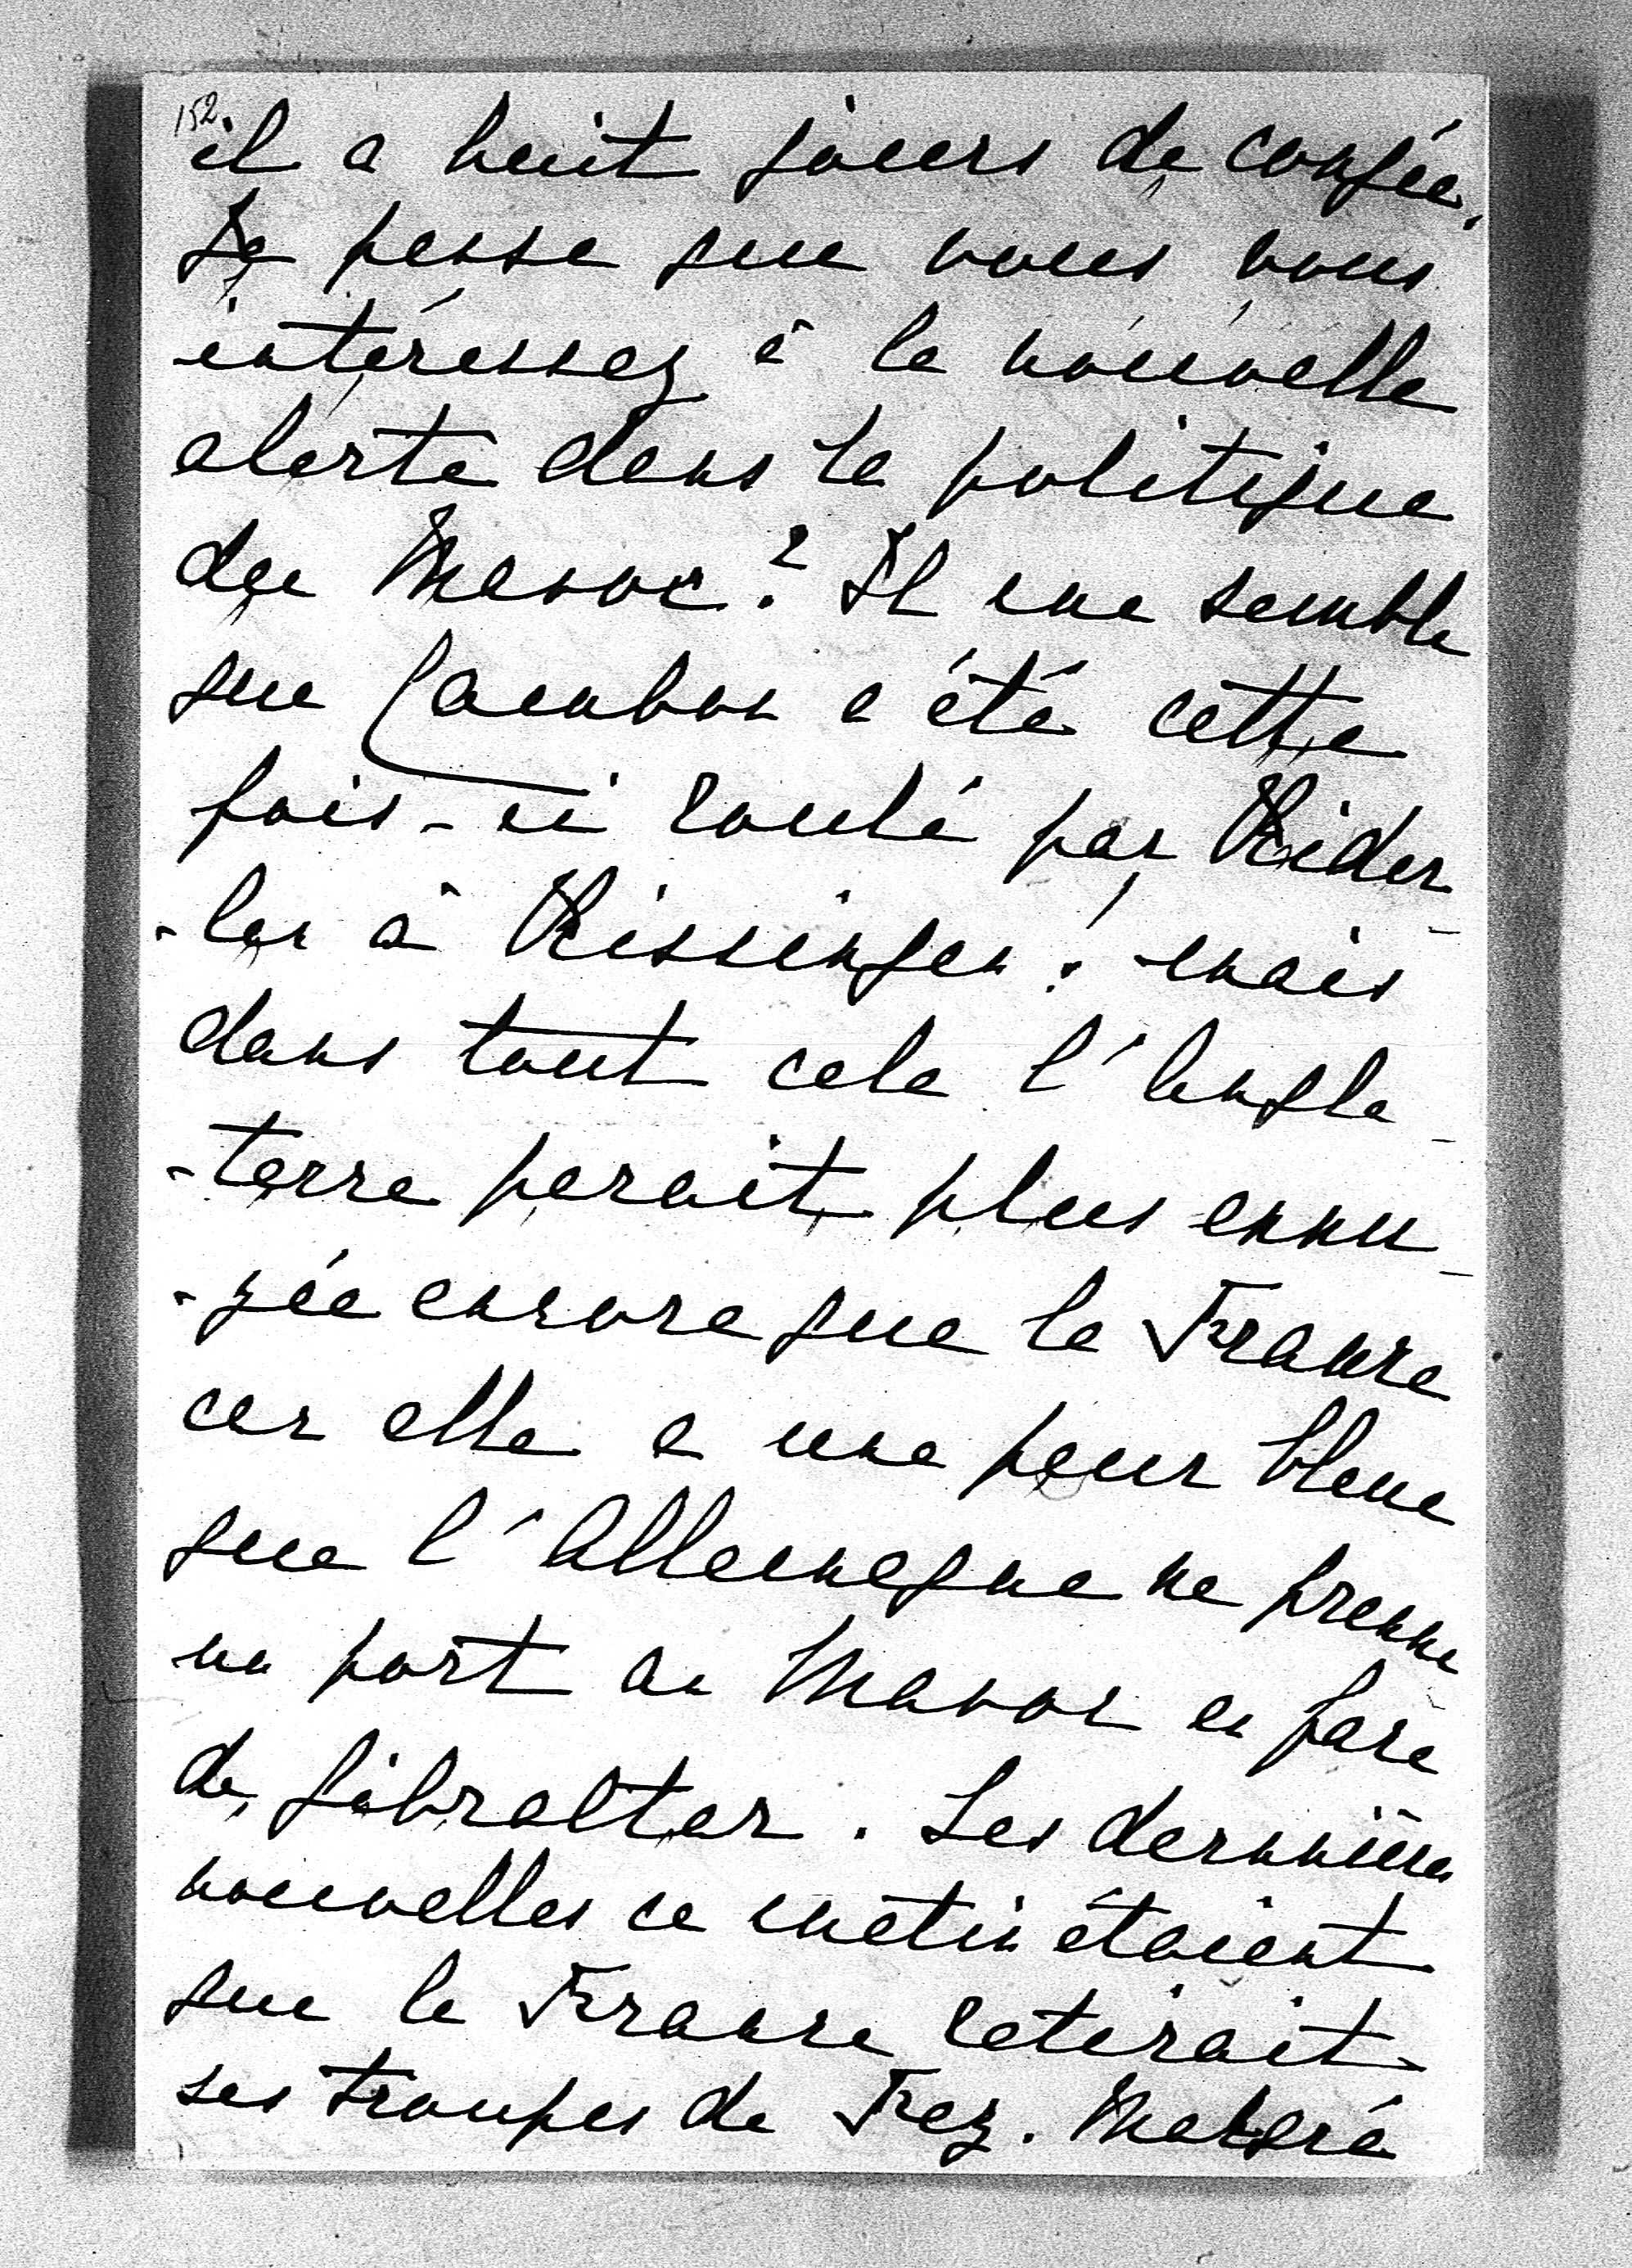 152
il a huit jours de congée.
Je pense que vous vous
intéressez à la nouvelle
alerte dans la politique
du Maroc? Il me semble
que Cambon a été cette
fois-ci roulé par Kider-
-len à Kissingen! mais
dans tout cela l'Angle-
-terre parait plus ennu-
-yée encore que la France
car elle a une peur bleue
que l'Allemagne ne prenne
un port au Maroc en face
de Gibraltar. Les dernnières
nouvelles ce matin étaient
que la France retirait
ses troupes de Fez. Malgré